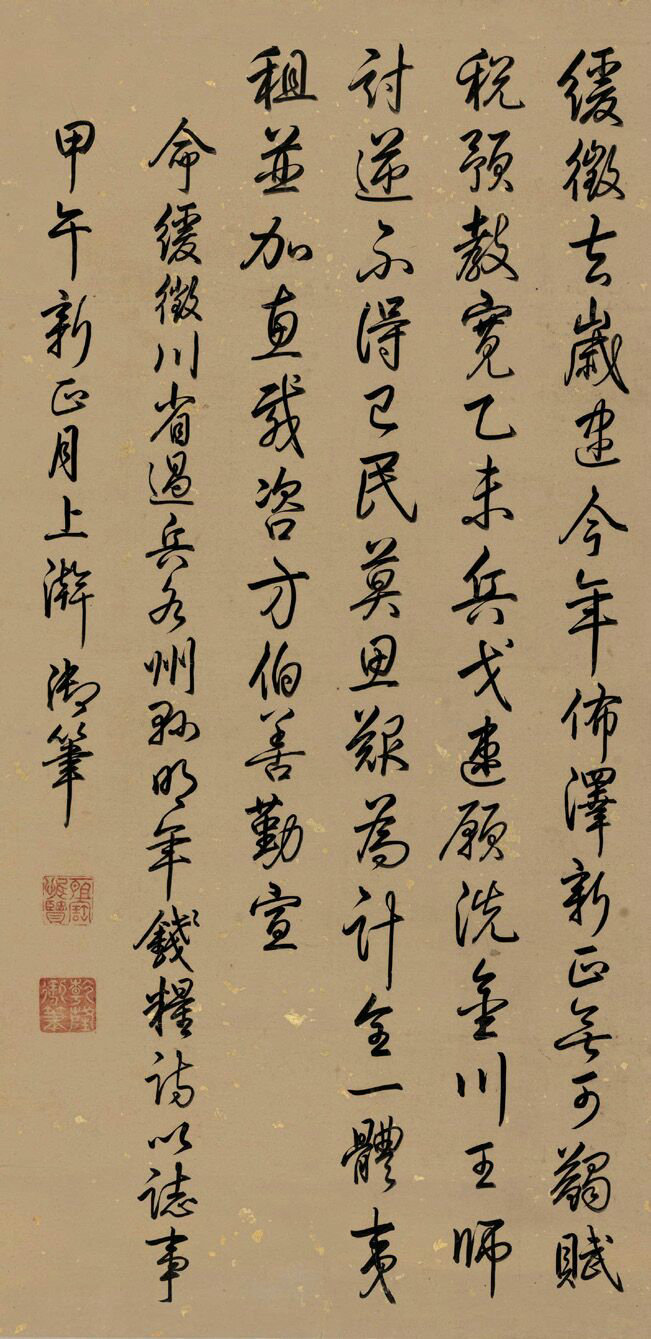 緩徵去歲逮今年佈澤新正無可蠲賦
稅預教寬乙未兵戈速願洗金川王師
討逆不得已民莫思艱為計全一體夷
租並加惠哉咨方伯善勤宣
命緩徵川省過兵各州縣明年錢糧詩以誌事
甲午新正月上澣御筆
乾隆御筆